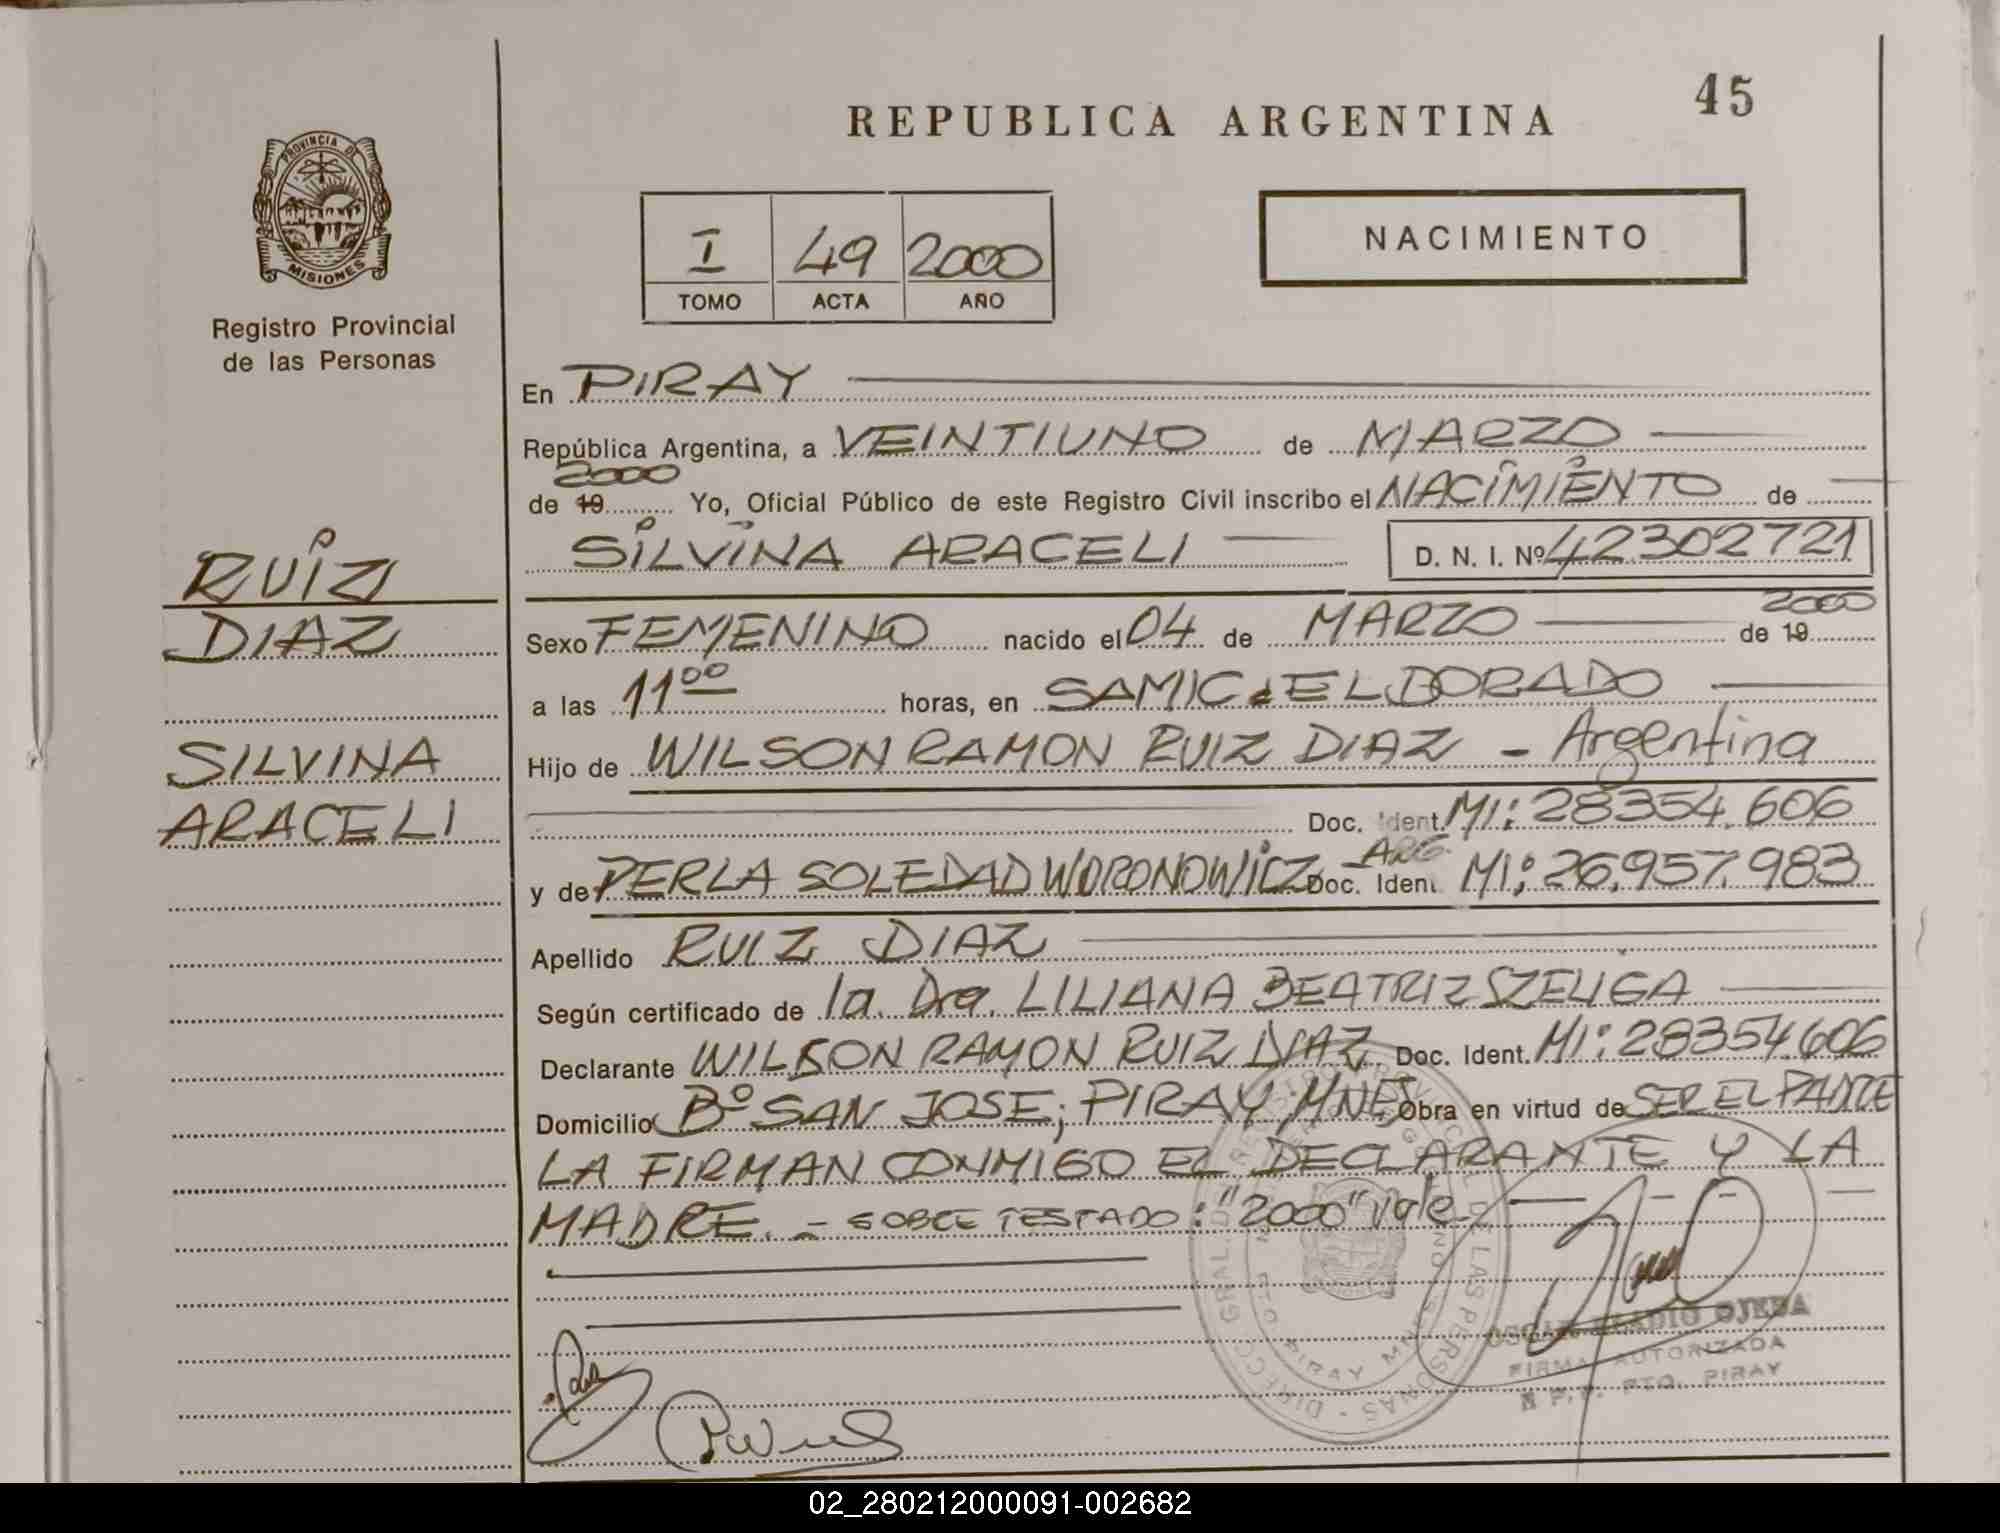 45
REPUBLICA ARGENTINA
PROVINCIA DE
MISIONES
Registro Provincial
de las Personas
I 49 2000
TOMO ACTA AÑO
NACIMIENTO
En PIRAY
República Argentina, a VEINTIUNO de MARZO
2000
de 19 Yo, Oficial Público de este Registro Civil inscribo el NACIMIENTO de
SILVINA ARACELI D. N. I. Nº 42302721
RUIZ
DIAZ
SILVINA
ARACELI
2000
Sexo FEMENINO nacido el 04 de MARZO de 19
a las 11 00 horas, en SAMIC ELDORADO
Hijo de WILSON RAMON RUIZ DIAZ - Argentina
Doc. Ident. MI: 28354.606
ARG.
y de PERLA SOLEDAD WORONOWICZ Doc. Ident MI: 26.957.983
Apellido RUIZ DIAZ
Según certificado de la. Dra. LILIANA BEATRIZ SZELIGA
Declarante WILSON RAMON RUIZ DIAZ Doc. Ident. MI: 28354.606
Domicilio Bº SAN JOSE; PIRAY MNES Obra en virtud de SER EL PADRE
LA FIRMAN CONMIGO EL DECLARANTE Y LA
MADRE. - SOBRE TESTADO: "2000" vale
OJEDA
FIRMA AUTORIZADA
PTO. PIRAY
02_280212000091-002682